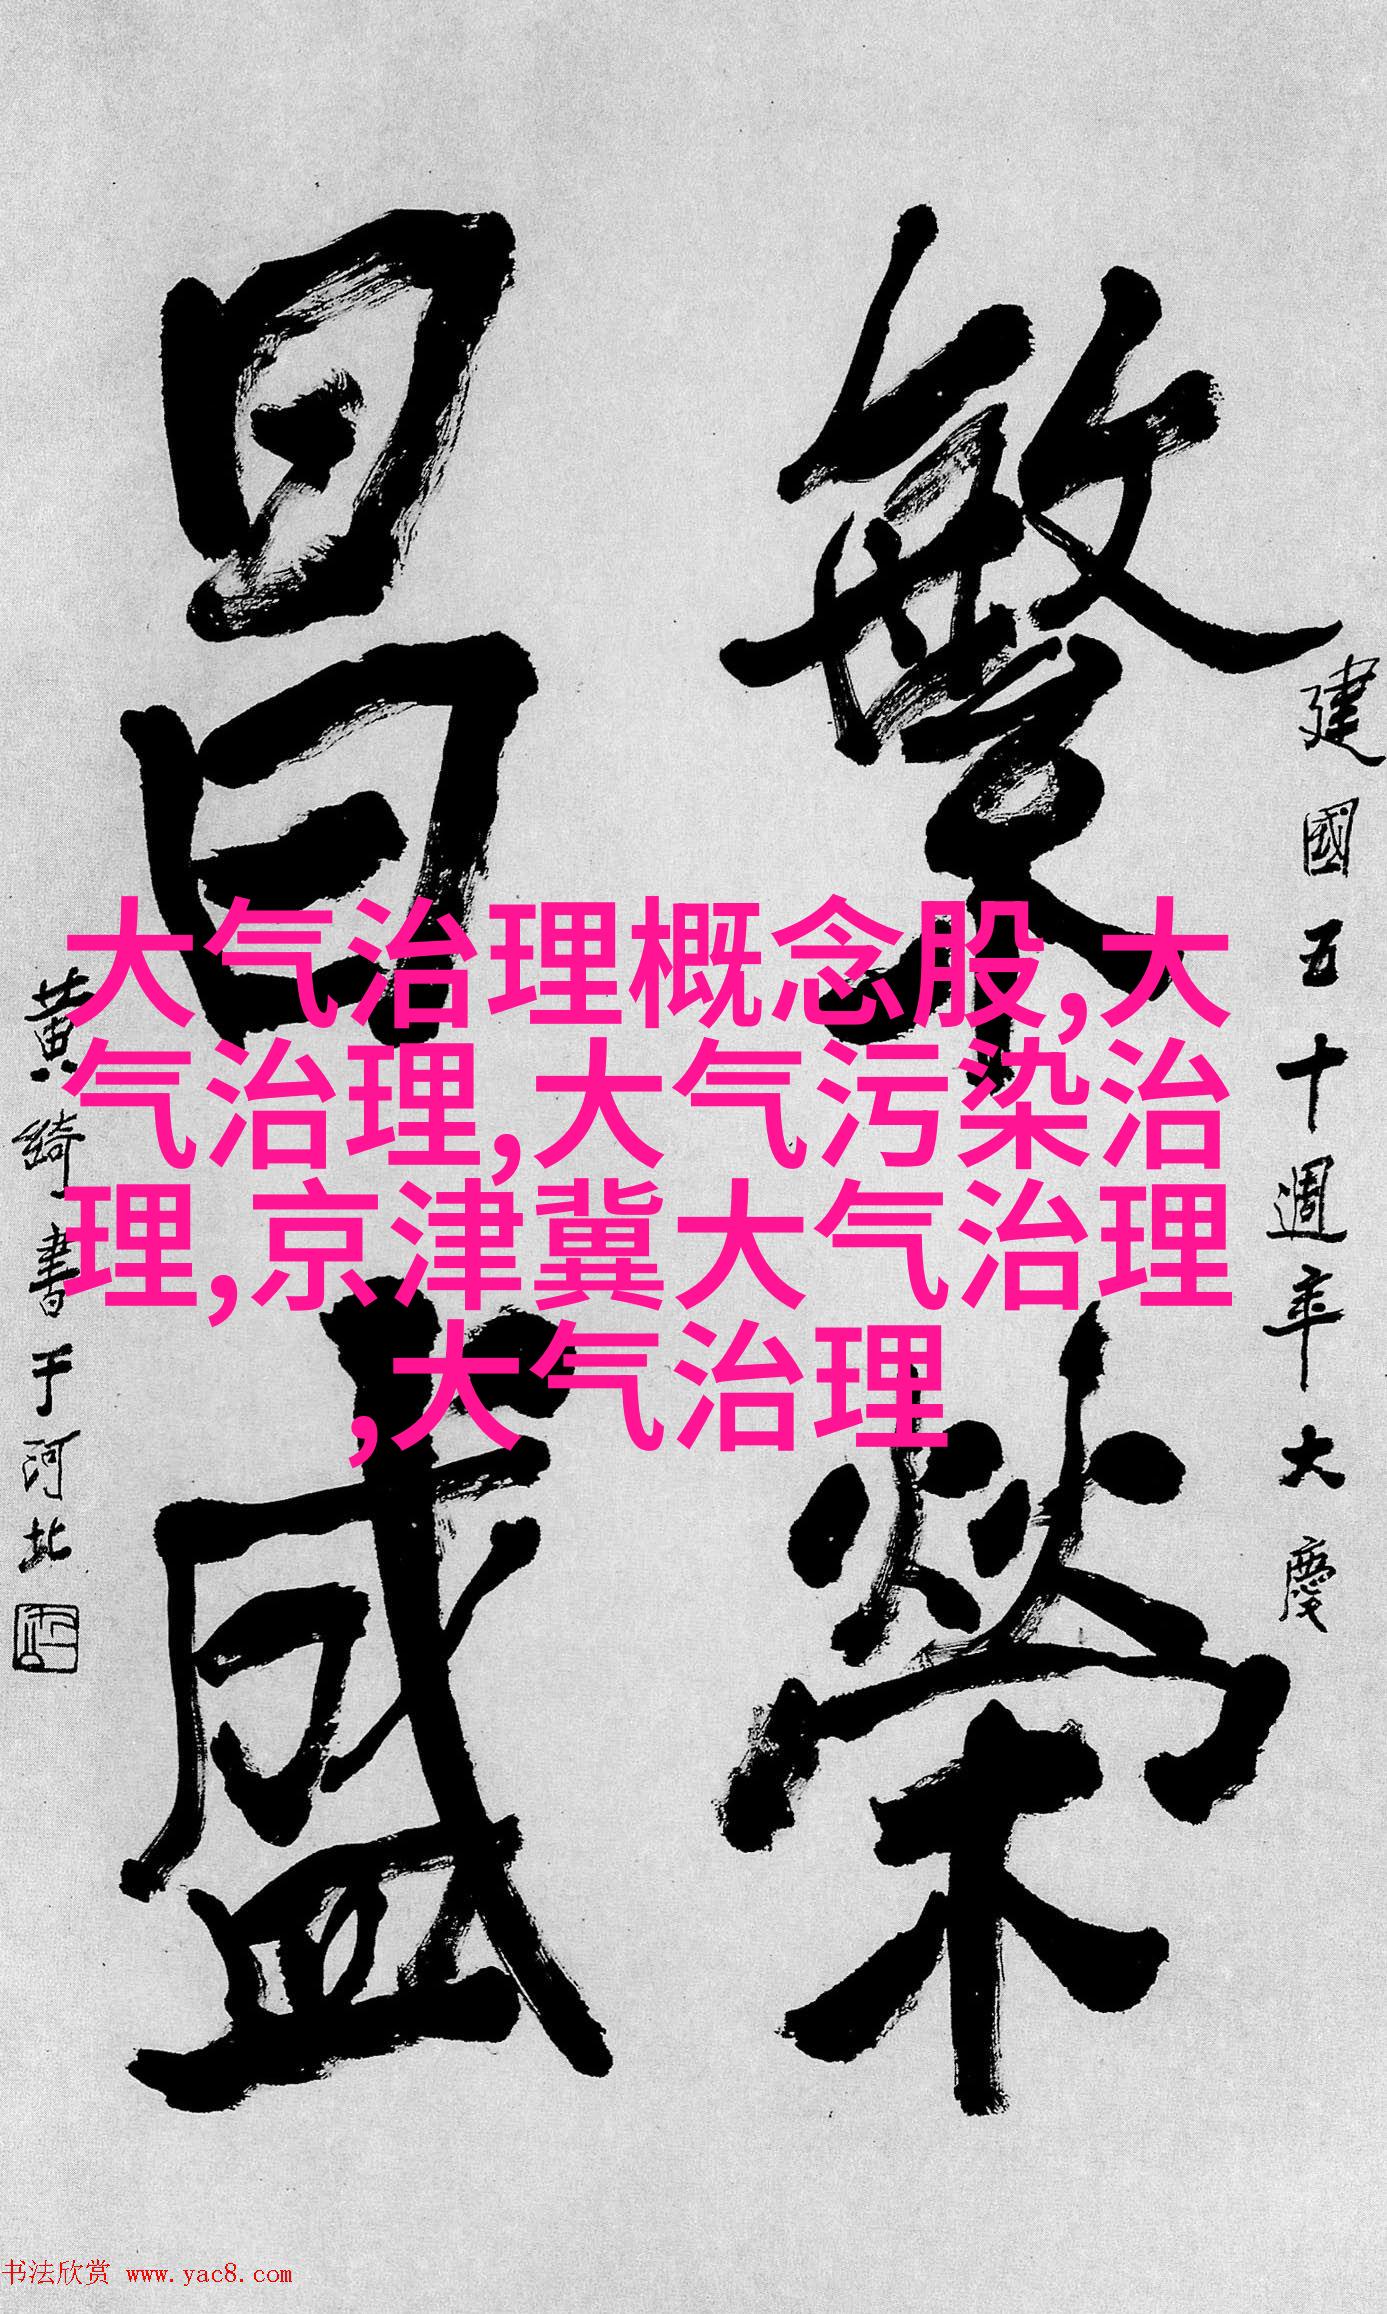 建國五十週年大慶
繁榮
昌盛
黃綺書于河北
大气治理概念股,大
气治理,大气污染治
理,京津冀大气治理
,大气治理
书法欣赏 www.yac8.com